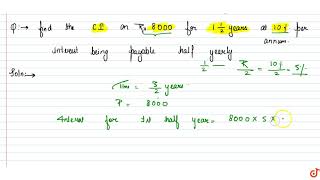 Q:→ find the CI on Rs. 8000 for 1 1/2 years at 10% per annum.
interest being payable half yearly
1/2 — R/2 = 10%/2 = 5%
Soln:→
Time = 3/2 years
P = 8000
Interest for 1st half year = 8000 × 5 ×